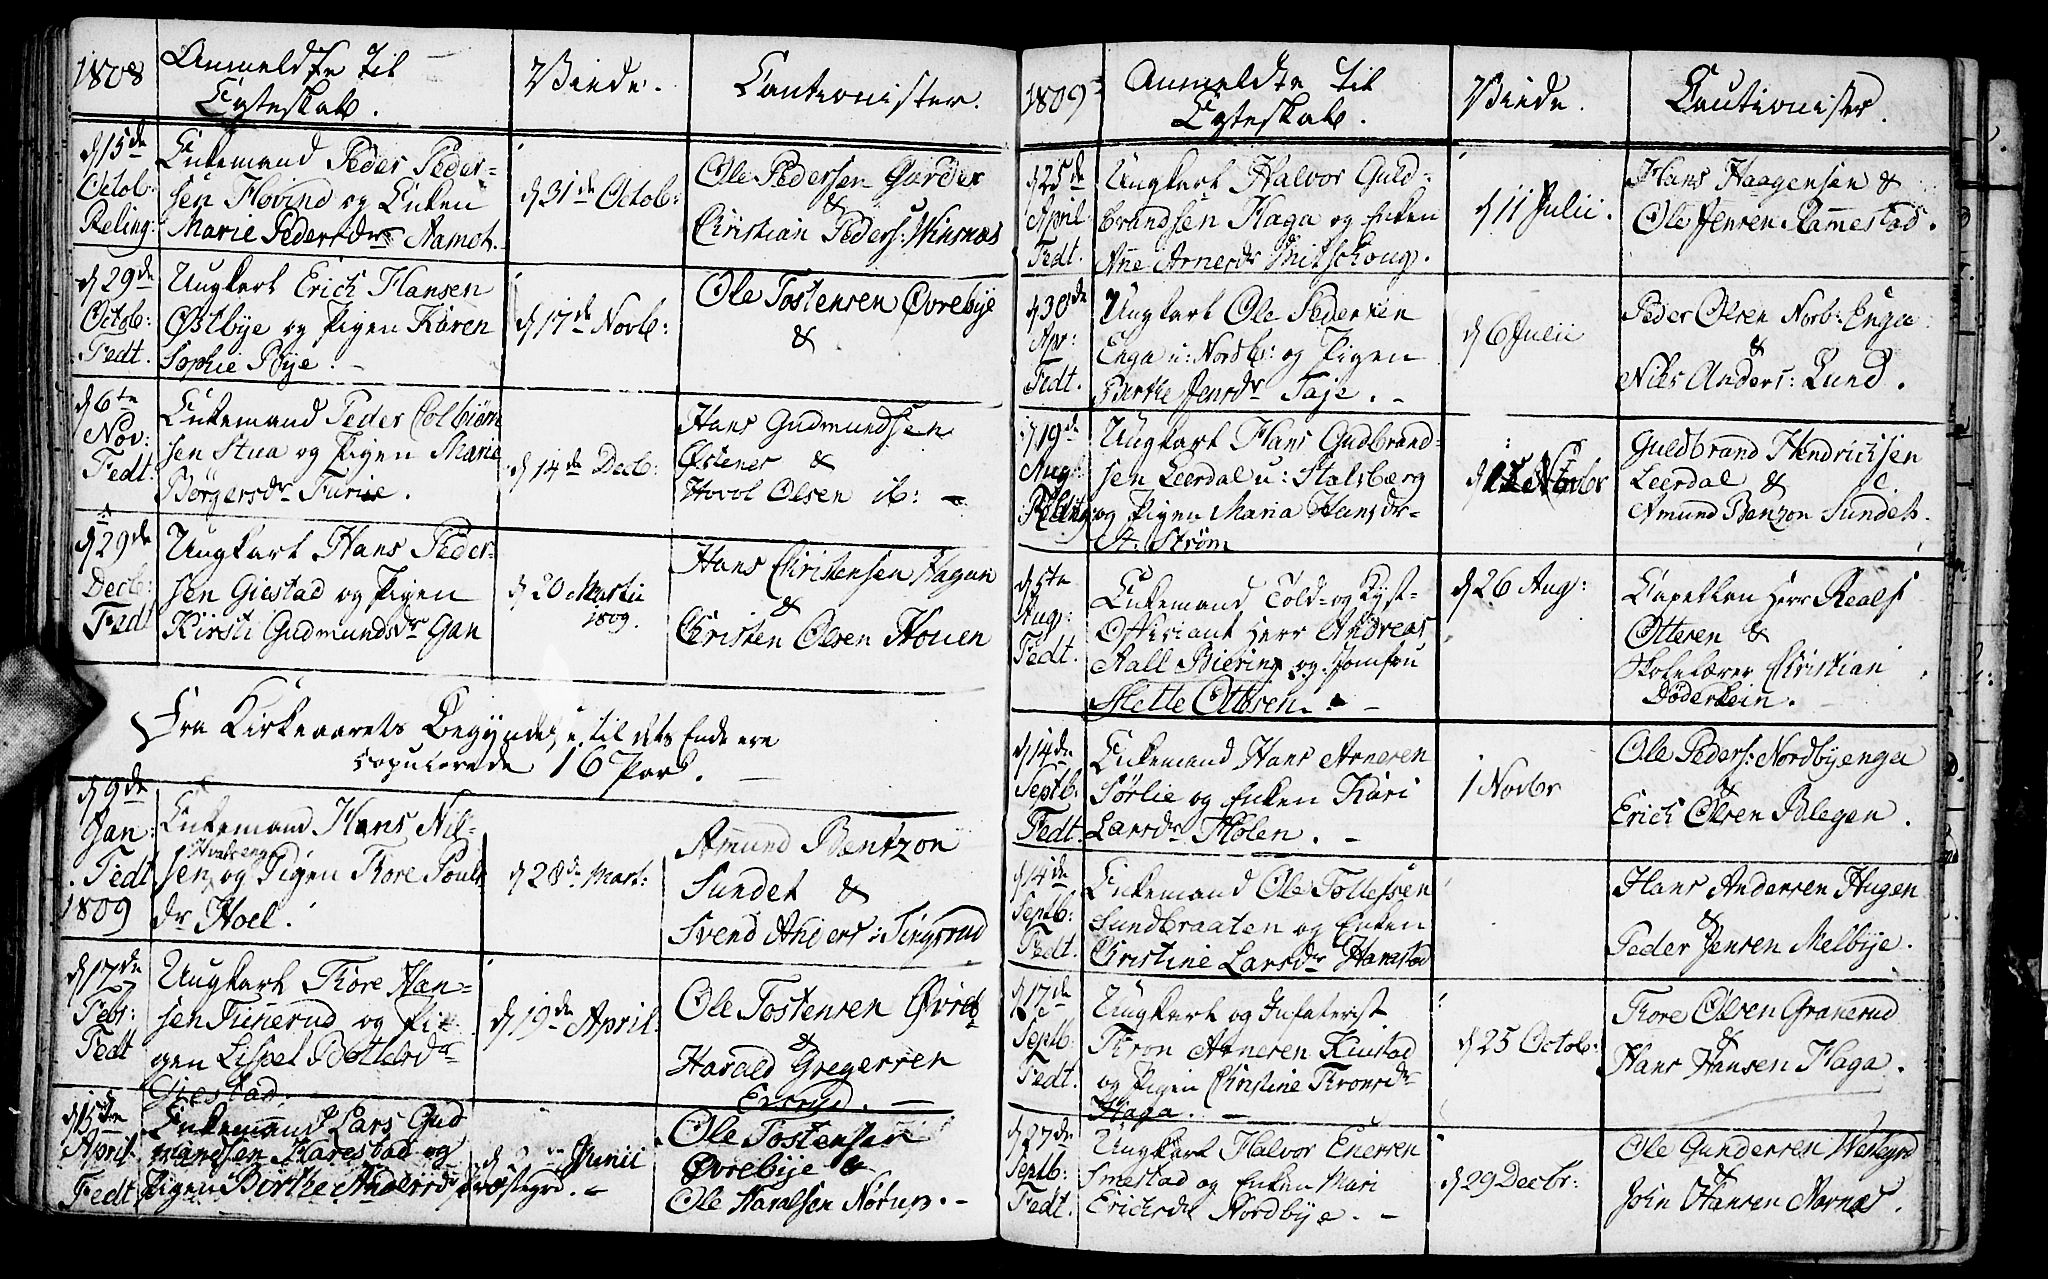 1808
Anmeldte til
Egteskab.
Viede.
Cautionister.
d 15de
Octob:
Reling:
Enkemand Peder Peder-
sen Hovind og Enken
Marie Pedersdr Aamot.
d 31de Octob:
Ole Pedersen Garder
&
Christian Peders: Winsnæs
d 29de
Octob:
Fedt.
Ungkarl Erich Hansen
Østbye og Pigen Karen
Sophie Bye.
d 17de Novb:
Ole Tostensen Øvrebye
&
d 6te
Nov:
Fedt
Enkemand Peder Colbiørn
sen Stua og Pigen Marie
Børgersdr Furue.
d 14de Decb:
Hans Gudmundsen
Østener &
Hovol Olsen ib:
d 29de
Decb:
Fedt
Ungkarl Hans Peder-
sen Giestad og Pigen
Kirsti Gudmundsdr Gan
d 20 Martii
1809.
Hans Christensen Hagan
&
Christen Olsen Houen
Fra Kirkeaarets Begyndelse til dets Ende ere
copulerede 16 Par.
d 9de
Jan:
Fedt
1809
Enkemand Hans Nil-
Hvalseng
sen og Pigen Thore Pouls
dr Hoel.
d 28de Mart:
Amund Bentzon
Sundet &
Svend Anders: Tingsrud
d 17de
Febr:
Fedt
Ungkarl Thore Han-
sen Tunerud og Pi-
gen Lispet Botlersdr
Giestad.
d 19de April.
Ole Tostensen Øvreb
&
Harald Gregersen
Ersrud.
d 15de
April
Fedt
Enkemand Lars Gud
mandsen Harestad og
Pigen Birthe Andersdr Præstegrd.
d Junii
Ole Tostensen
Øvrebye &
Ole Haralsen Nøtup.
1809
Anmeldte til
Egteskab.
Viede.
Cautionister.
d 25de
April
Fedt.
Ungkarl Halvor Guld-
brandsen Haga og Enken
Anne Arnesdr Mitskoug.
d 11 Julii.
Hans Haagensen &
Ole Jensen Rammestad.
d 30de
Apr:
Fedt.
Ungkarl Ole Pedersen
Enga u: Nordb: og Pigen
Berthe Jensdr Faje.
d 6 Julii
Peder Olsen Norb: Enga
&
Niels Anders: Lund.
d 19de
Aug:
Reling
Ungkarl Hans Gudbrand-
sen Leerdal u: Stalsberg
og Pigen Maria Hansdr-
St: Strøm
Guldbrand Hendrichsen
Leerdal &
Amund Benzon Sundet.
d 5te
Aug:
Fedt.
Enkemand Told- og Kyst-
Officiant Herr Andreas
Aall Biering og Jomfru
Mette Ottesen.
d 26 Aug:
Capellan Herr Realf
Ottesen &
Skolelærer Christian
Døderlein.
d 14de
Septb:
Fedt.
Enkemand Hans Arnesen
Sørlie og Enken Kari
Larsdr Holen.
1 Novbr
Ole Peders: Nordbyenga
&
Erich Olsen Blegen.
d 14de
Septb:
Fedt.
Enkemand Ole Tollefsen
Sundbraaten og Enken
Christine Larsdr Harestad
Hans Andersen Hugen
&
Peder Jensen Melbye.
d 17de
Septb:
Fedt.
Ungkarl og Infaterist
Thron Arnesen Kiustad
og Pigen Christine Thronsdr
Haga.
d 25 Octob:
Thore Olsen Granerud
&
Hans Hansen Haga.
d 27de
Septb:
Fedt.
Ungkarl Halvor Enersen
Smestad og Enken Mari
Erichsdr Nordbye.
d 29 Decbr:
Ole Gundersen Westgrd
&
John Hansen Nornæs.